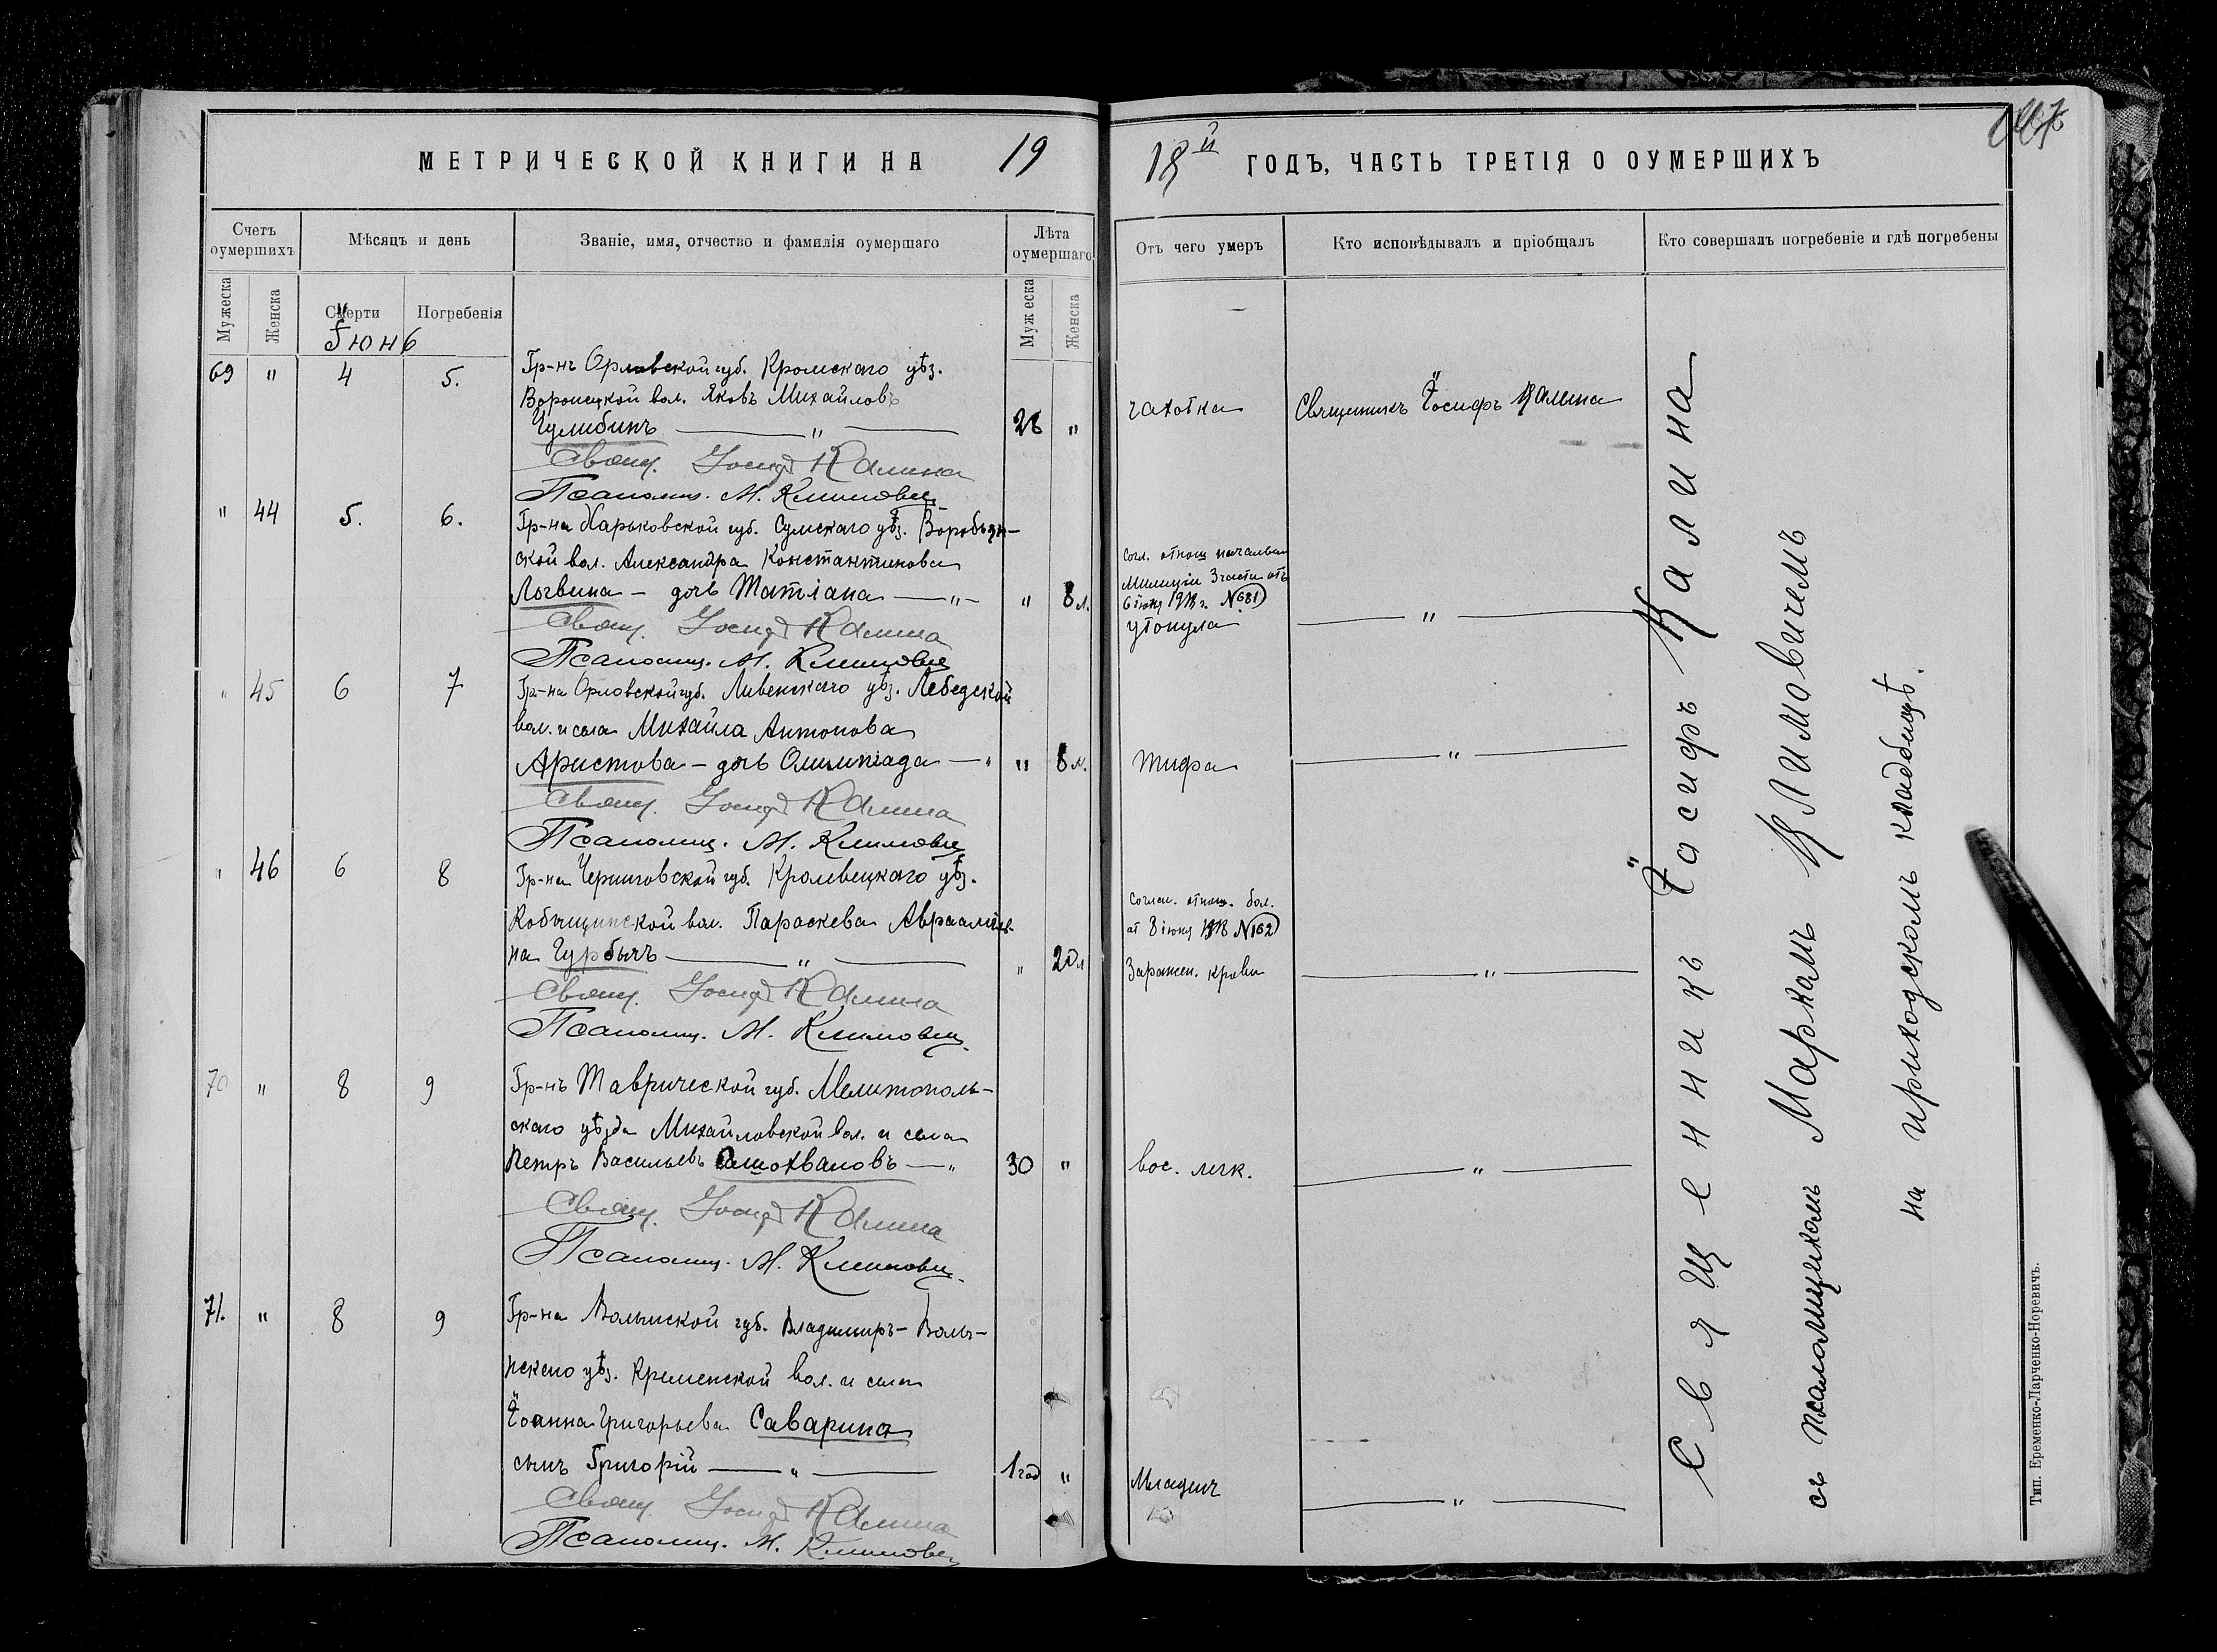 МЕТРИЧЕСКОЙ КНИГИ НА 19
18й ГОДЪ, ЧАСТЬ ТРЕТІЯ О ОУМЕРШИХЪ
Счетъ оумершихъ
Мѣсяцъ и день
Званіе, имя, отчество и фамилія оумершаго
Лѣта оумершаго
Отъ чего умеръ
Кто исповѣдывалъ и пріобщалъ
Кто совершалъ погребеніе и гдѣ погребены
Мужеска
Женска
Смерти
Погребенія
Мужеска
Женска
Їюнь
69 " 4 5.
Гр-нъ Орловской губ. Кромскаго уѣз.
Воронецкой вол. Яковъ Михайловъ
Гулибинъ — " — 28 "
чахотка
Священникъ Їосифъ Калина
Свящ. Іосиф Калина
Псаломщ. М. Климович
" 44 5. 6.
Гр-на Харьковской губ. Сумскаго уѣз. Воробьян-
ской вол. Александра Константинова
Логвина - дочь Татіана — " — " 8 л.
согл. отнош. начальн.
Милиціи 3 части отъ
6 іюня 1918 г. №681
утонула
— " —
Свящ. Іосиф Калина
Псаломщ. М. Климович
" 45 6 7
Гр-на Орловской губ. Ливенскаго уѣз. Лебедской
вол. и села Михаила Антонова
Аристова - дочь Олимпіада — " " 8 м.
тифа
— " —
Свящ. Іосиф Калина
Псаломщ. М. Климович
" 46 6 8
Гр-на Черниговской губ. Кролевецкаго уѣз.
вол. Параскева Авраамов-
на Гурбычъ — " — " 20 л
Соглас. отнош. бол.
от 8 іюня 1918 №162
Заражен. крови
— " —
Свящ. Іосиф Калина
Псаломщ. М. Климович
70 " 8 9
Гр-нъ Таврической губ. Мелитополь-
скаго уѣзда Михайловской вол. и села
Петръ Васильевъ — " 30 "
вос. легк.
— " —
Свящ. Іосиф Калина
Псаломщ. М. Климович
71. " 8 9
Гр-на Волынской губ. Владимиръ-Волы-
нскаго уѣз. Кременской вол. и села
Їоанна Григорьева Саварина
сынъ Григорій — " — 1 год "
Младен
— " —
Свящ. Іосиф Калина
Псаломщ. М. Климович
Священникъ Їосифъ Калина
съ псаломщикомъ Маркомъ Климовичемъ
на приходскомъ кладбищѣ.
Тип. Еременко-Ларченко-Норевичъ.